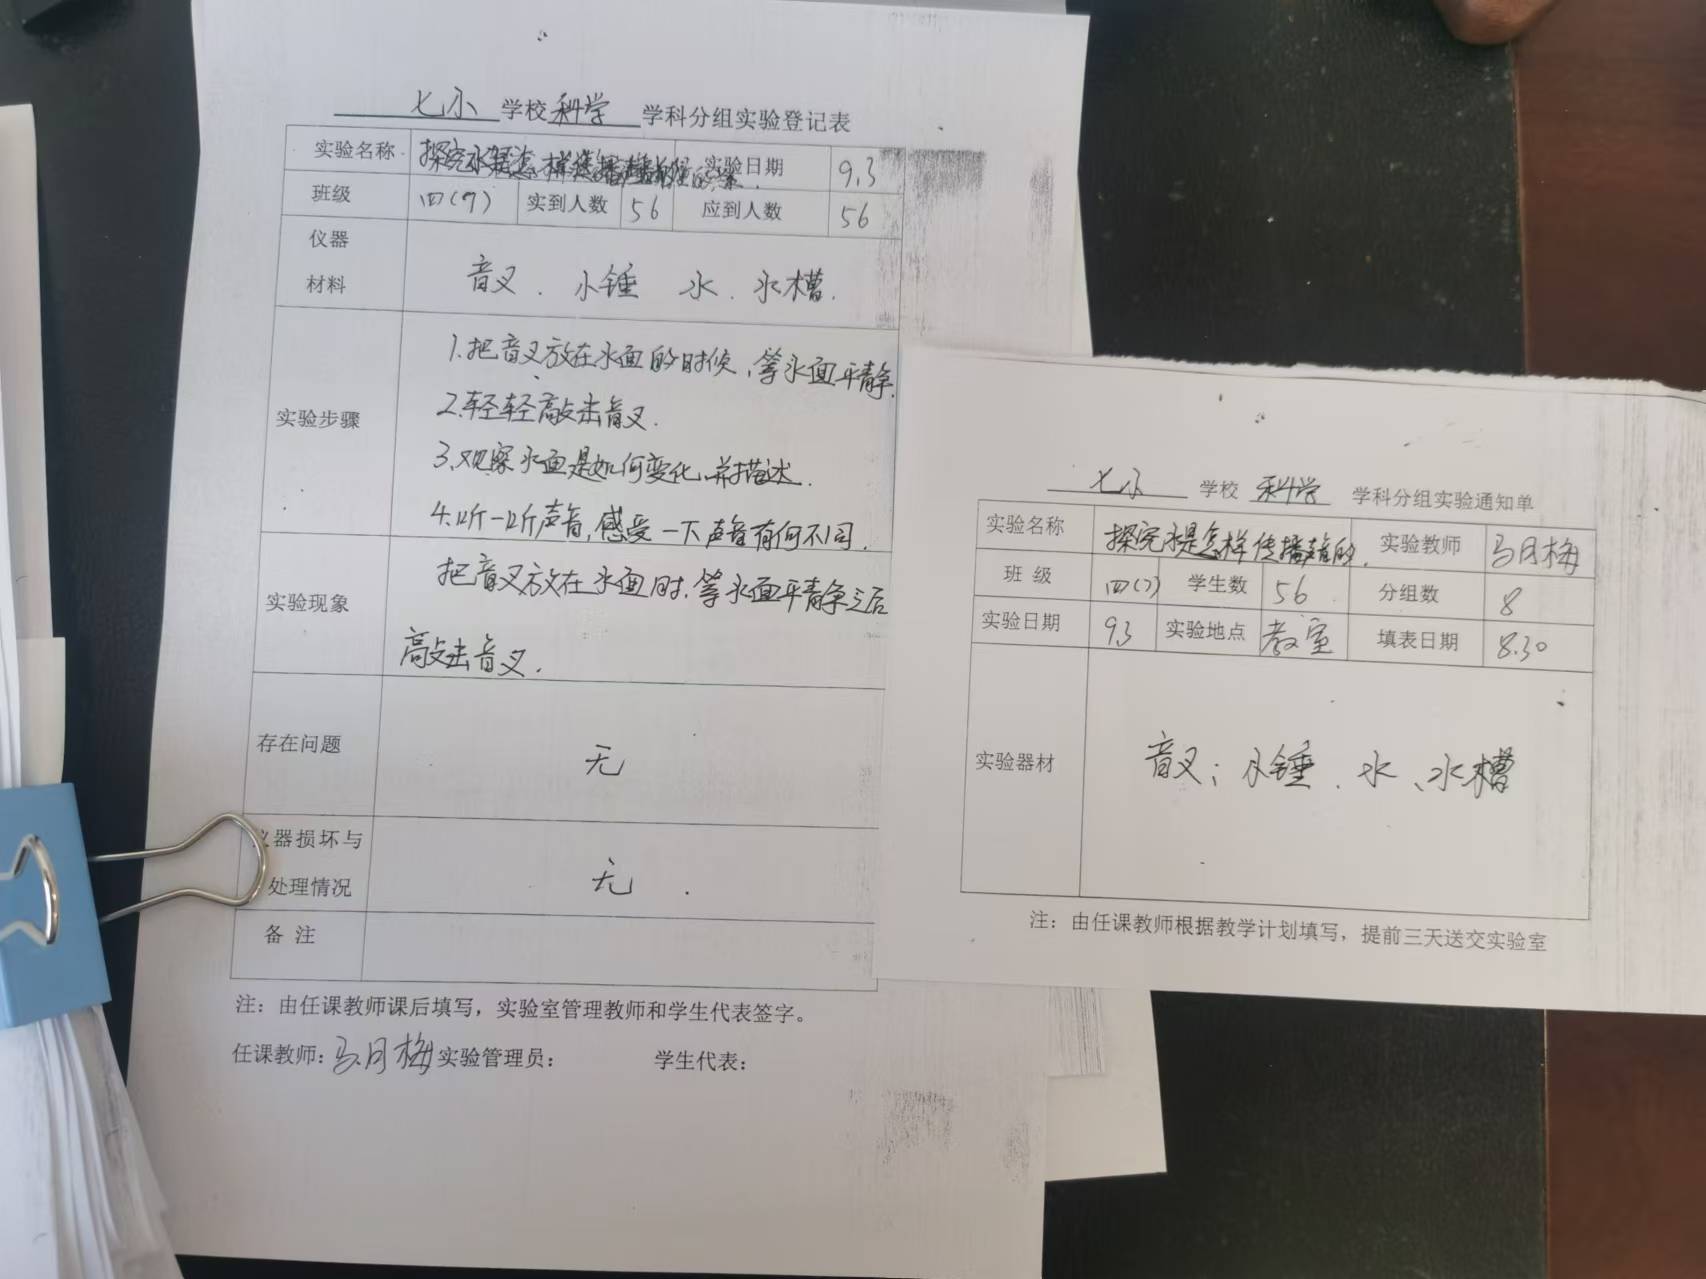 七小 学校 科学 学科分组实验登记表
实验名称 探究水是怎样传播声音的 实验日期 9.3
班级 四(7) 实到人数 56 应到人数 56
仪器
材料
音叉、小锤 水、水槽.
实验步骤
1.把音叉放在水面的时候,等水面平静.
2.轻轻敲击音叉.
3.观察水面是如何变化,并描述.
4.听一听声音,感受一下声音有何不同.
实验现象
把音叉放在水面时.等水面平静之后
敲击音叉.
存在问题 无
仪器损坏与
处理情况
无.
备 注
注:由任课教师课后填写,实验室管理教师和学生代表签字。
任课教师:马月梅 实验管理员: 学生代表:
七小 学校 科学 学科分组实验通知单
实验名称 探究水是怎样传播声音的. 实验教师 马月梅
班 级 四(7) 学生数 56 分组数 8
实验日期 9.3 实验地点 教室 填表日期 8.30
实验器材 音叉;小锤、水、水槽
注:由任课教师根据教学计划填写,提前三天送交实验室